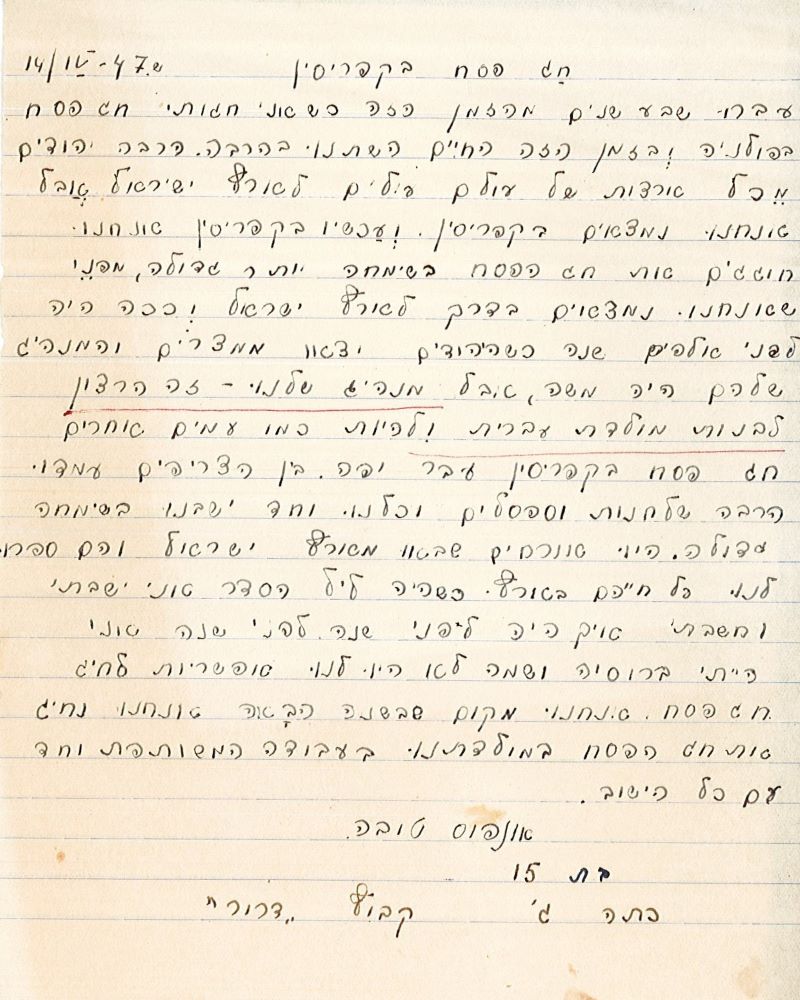 חַג פסח בקפריסין ש. 47-IV/14
עברו שבע שנים מהזמן הזה כשאני חגותי חג פסח
בפולניה וְבזמן הזה החיים השתנו בהרבה. הרבה יהודים
מִכל ארצות של עולם עולים לארץ ישיראל אֲבל
אנחנו נמצאים בקפריסין. וְעַכשיו בקפריסין אנחנו
חוגגים את חג הפסח בשימחה יותר גדולה, מפנֵי
שאנחנו נמצאים בדרק לארץ ישראל וְככה היה
לפני אלפים שנה כשהיהודים יצאו ממצרים והמנהיג
שלהם היה משה, אבל מנהיג שלנו - זה הרצון
לבנות מולדת עברית וְלהיות כמו עמים אחרים
חג פסח בקפריסין עיבר יפה. בין הצריפים עמדו
הרבה שלחנות וספסלים וכלנו וחד ישבנו בשימחה
גדולה. היו אורחים שבאו מארץ ישראל והם ספרו
לנו כל חייהם בארץ. כשהיה ליל הסדר אני ישבתי
וחשבתי איק היה ליפני שנה. לפני שנה אני
הייתי ברוסיה ושמה לא היו לנו אפשריות לחיג
חג פסח. אנחנו מקום שבשנה הבָאה אנחנו נחיג
את חג הפסח במולדתנו בעבודה המשותפת וחד
עם כל הישוב.
אנפוס טובה.
בת 15
כתה ג' קבוץ "דרור"